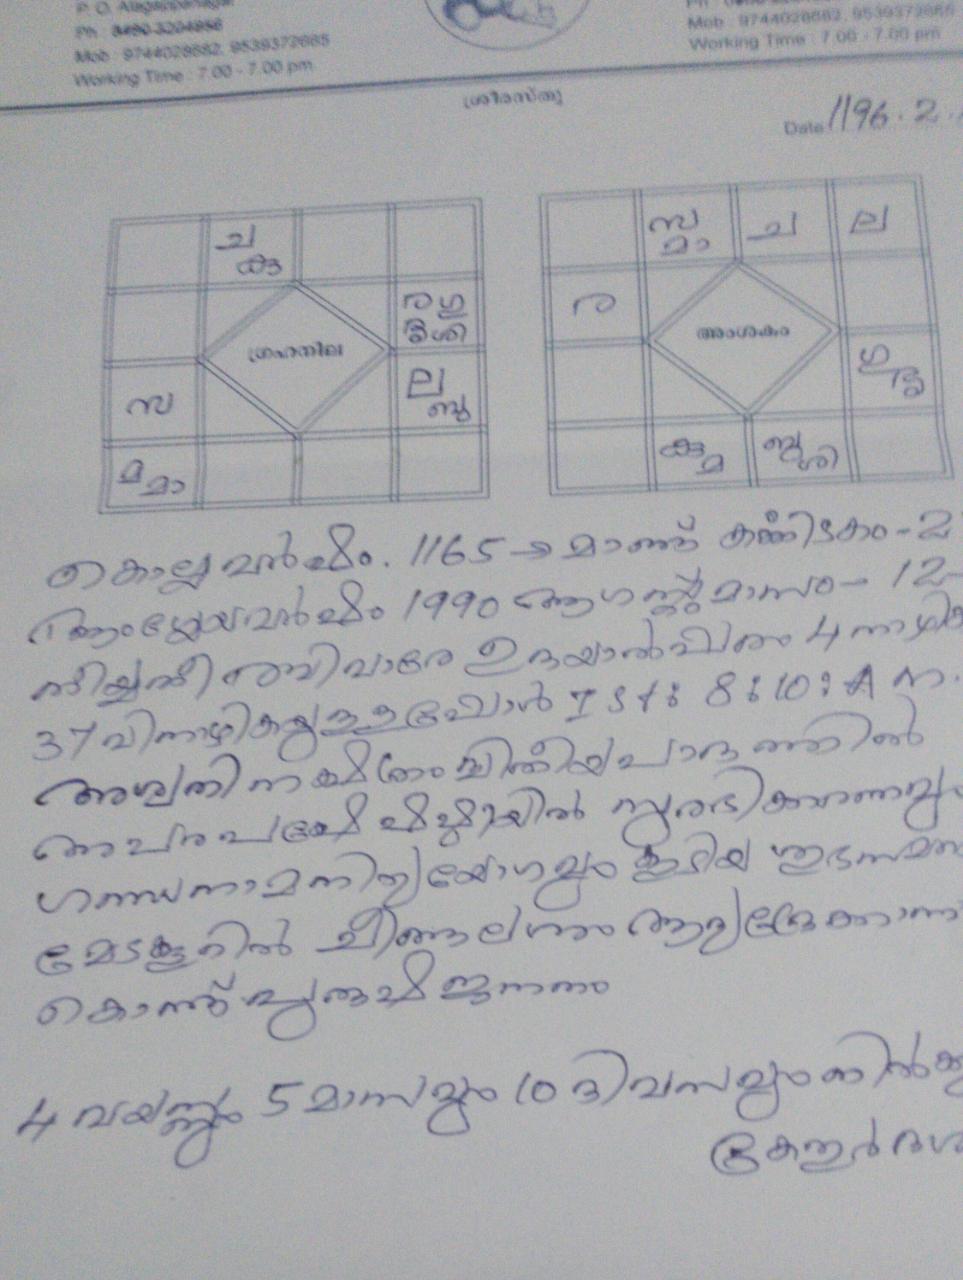 P. O. Alagappanagar
Ph : 0480 3204956
Mob : 9744028682, 9539372665
Working Time : 7.00 - 7.00 pm
Mob : 9744028682, 9539372665
Working Time : 7.00 - 7.00 pm
ശ്രീരസ്തു
Date 1196.2.
ച
കു
ര ഗു
ശി
ഗ്രഹനില
ല
ബു
സ
മ
മാ
സ
മാ
ച
ല
ര
അംശകം
ഗു
കു
മ
ബു
ശി
കൊല്ലവർഷം. 1165 മാണ്ട് കർക്കിടകം -
വർഷം 1990 ആഗസ്റ്റ് മാസം - 12
ഉദയാൽപരം 4
37 വിനാഴികയുള്ളപ്പോൾ 8:10: A
അശ്വതി നക്ഷത്രം ദ്വിതീയപാദത്തിൽ
അപരപക്ഷ ഷഷ്ഠിയിൽ
ഗണ്ഡനാമനിത്യയോഗവും കൂടിയ
മേടക്കൂറിൽ ചിങ്ങലഗ്നം
കൊണ്ട് പുരുഷജനനം
4 വയസ്സും 5 മാസവും 10 ദിവസവും